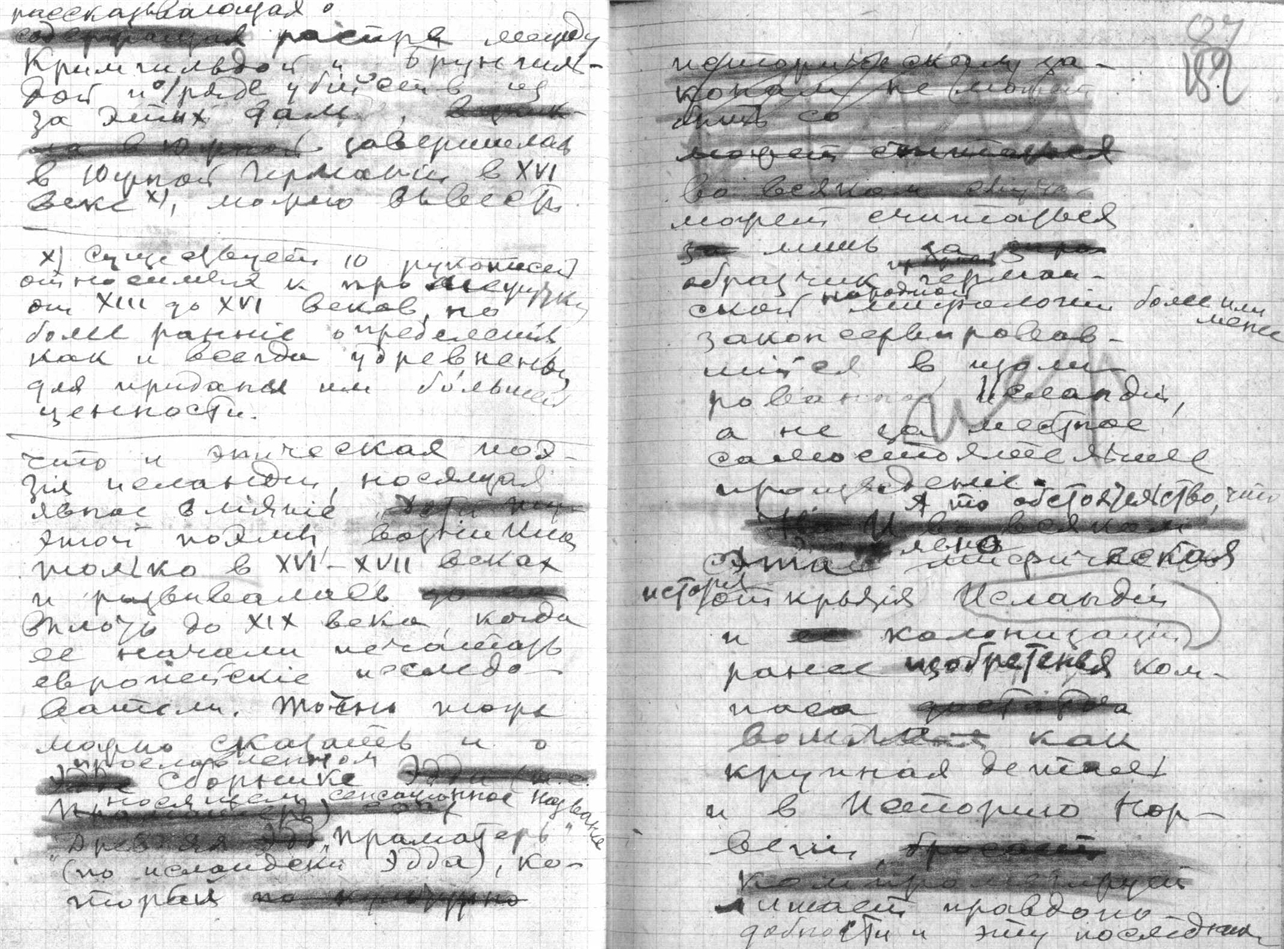 рассказывающая о
распре между
Кримгильдой и Брунгиль-
дой и о ряде убійств из
за этих дам,
завершилась
в Южной Германіи в XVI
веке x), можно вывести
x) Существует 10 рукописей
относимых к промежутку
от XIII до XVI веков, но
более раннія определенія
как и всегда удревнены
для приданья им большей
ценности.
что и эпическая поэ-
зія исландіи, носящая
явное вліяніе
этой поэмы, возникла
только в XVI–XVII веках
и развивалась
вплоть до XIX века, когда
ее начали печатать
европейскіе исследо-
ватели. Точно тоже
можно сказать и о
прославленном
сборнике
носящем сенсационное название
"Праматерь"
(по исландски Эдда), ко-
торый
97
182
историческому за-
конам не может
быть со
может считаться
во всяком случае
может считаться
лишь за
образчик герман-
ской народной мифологіи более или
менее
законсервировав-
шійся в изоли-
рованной Исландіи,
а не за местное
самостоятельное
произведеніе.
А то обстоятельство, что
эта явно мифическая
история открытія Исландіи
и колонизаціи
ранее изобретенья ком-
паса
вошла как
крупная деталь
и в Исторію Нор-
вегіи,
компрометирует
лишает правдопо-
добности и эту последнюю